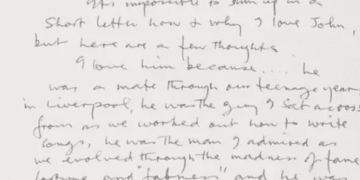 It's impossible to sum up in a
short letter how & why I love John,
but here are a few thoughts
I love him because.... he
was a mate through our teenage years
in Liverpool, he was the guy I sat across
from as we worked out how to write
songs, he was the man I admired as
we evolved through the madness of fame
fortune and "fabness" and he was